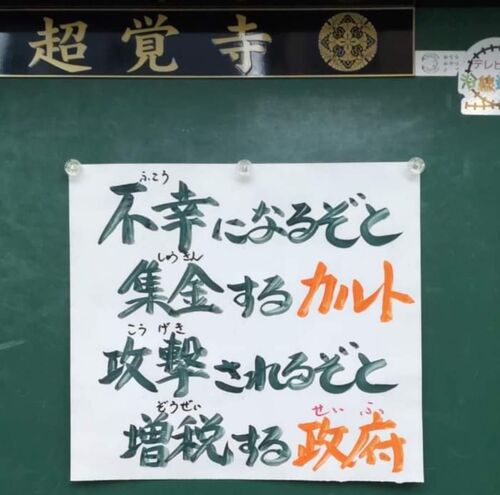 超覚寺
テレビ
ふこう
不幸になるぞと
しゅうきん
集金するカルト
こうげき
攻撃されるぞと
ぞうぜい せいふ
増税する政府